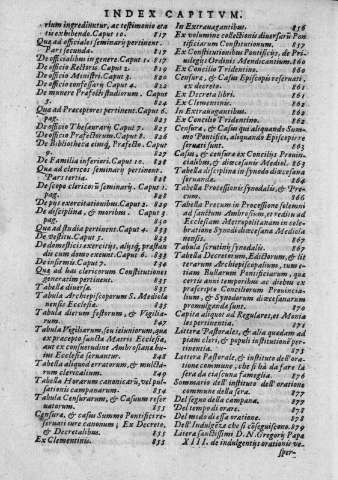 INDEX CAPITVM.
rium ingrediuntur, ac testimonio era
tis exhibende. Caput 10. 817
Quæ ad officiales seminarij pertinent.
Pars secunda. 817
De officialibus in genere. Caput 1. 817
De officio Rectoris Caput 2. 820
De officio Ministri. Caput 3. 820
De officio confessarij Caput 4. 822
De munere Præfecti studiorum. Caput 5.
pag.
Quæ ad Præceptores pertinent Caput 6.
pag.
De officio Thesaurarij Caput 7.
De officio Præfectorum Caput 8. 826
De Bibliotheca eiusq́; Præfecto. Caput
9. 827
De Familia inferiori. Caput 10. 828
Quæ ad clericos seminarij pertinent.
Pars tertia. 828
De scopo clericorũ seminarij. Caput 1.
pag.
De pijs exercitationibus. Caput 2. 829
De disciplina, & moribus. Caput 3
pag. 830
Quæ ad studia pertinent Caput 4. 833
De vestitu. Caput 5. 833
De domesticis exercitijs, alijsq́; præstan
dis cum domo exeunt. Caput 6. 833
De infirmis Caput 7.
Quæ ad huc clericorum Constitutiones
generatim pertinent. 835
Tabella diuersa. 835
Tabula Archiepiscoporum S. Mediola
nensis Ecclesiæ
Tabula dierum festorum, & Vigilia-
rum. 847
Tabula Vigiliarum, seu ieiuniorum, quæ
ex præcepto sanctæ Matris Ecclesiæ,
aut ex consuetudine Ambrosianæ hu-
ius Ecclesiæ seruantur. 848
Tabella aliquod æratorum, & mulcta-
rum clericalium. 850
Tabella Horarum canonicarũ, vel pul-
sationis campanarum 854
Tabula Censurarum, & Casuum reser
uatorum. 855
Censuræ, & casus Summo Pontifici re-
seruati iure canonum; Ex Decreto,
& Decretalibus. 855
Ex Clementinis. 855
In Extrauagantibus. 856
Ex volumine collectionis diuersarũ Pon
tificarum Constitutionum. 857
Ex Constitutionibus Pontificijs, de Pri-
uilegijs Ordinis Mendicantium. 860
Ex Concilio Tridentino. 860
Censuræ, & Casus Episcopis reseruati
ex decreto. 861
Ex Decretalibus. 861
Ex Clementinis. 861
In Extrauagantibus.
Ex Concilio Tridentino.
Censuræ, & Casus qui aliquando Sum-
mo Pontifici, aliquando Episcopis re
seruati sunt. 863
Casus, & censuræ ex Concilijs Prouin-
cialibus, & diœcesanis Mediol. 863
Tabella disciplinæ in synodo diœcesana
seruandæ. 864
Tabella Processionis synodalis, & Pre-
cum. 866
Tabella Precum in Processione solenni
ad sanctum Ambrosium, et reditu ad
Ecclesiam Metropolitanam in cele-
bratione Synodi diœcesanæ Mediola
nensis. 867
Tabula scrutinij synodalis.
Tabella Decretorum, Edictorum, & lit
terarum Archiepiscopalium, tum e-
tiam Bullarum Pontificiarum, quæ
certis anni temporibus ac diebus ex
præscripto Conciliorum Prouincia-
lium, & Synodorum diœcesanarum
promulgandæ sunt. 869
Capita aliquot ad Regulares, et Monia
les pertinentia. 871
Litteræ Pastorales, & alia quædam ad
piam cleri, & populi institutionẽ per-
tinentia. 876
Litteræ Pastorale, & instituto dell'ora-
tione commune, che si hà da fare la
sera da ciascuna famiglia. 876
Sommario dell'instituto dell'oratione
commune della sera. 877
Del segno della campana. 877
Del tempo di orare. 878
Del modo di essa oratione. 878
Dell'Indulgẽze che si cõseguiscono. 879
Literæ sanctissimi D. N. Gregorij Papæ
XIII. de indulgentijs orationis ve-
sper-